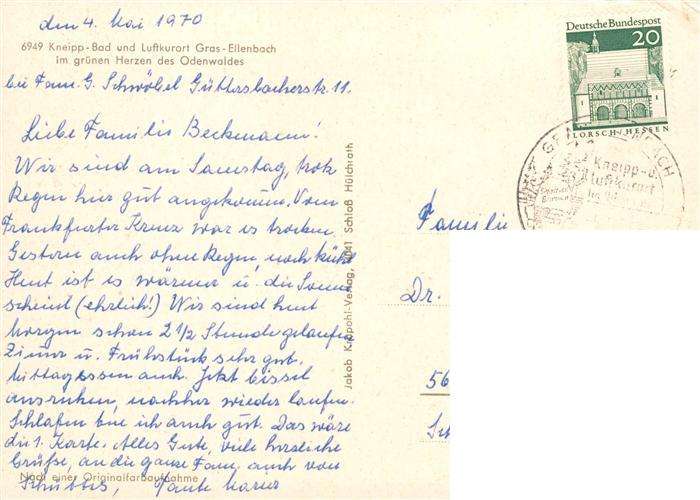 den 4. Mai 1970
6949 Kneipp-Bad und Luftkurort Gras-Ellenbach
im grünen Herzen des Odenwaldes
bei Fam. G. Schwöbel Güttersbacherstr. 11.
Liebe Familie Beckmann!
Wir sind am Samstag, trotz
Regen hier gut angekommen. Vom
Frankfurter Kreuz war es trocken.
Gestern auch ohne Regen, noch kühl
Heut ist es wärmer u. die Sonne
scheint (ehrlich!) Wir sind heut
morgen schon 2 1/2 Stunde gelaufen
Zimmer u. Frühstück sehr gut.
Mittagessen auch. Jetzt bissel
ausruhen, nachher wieder laufen.
Schlafen tue ich auch gut. Das wäre
die 1. Karte. Alles Gute, viele herzliche
Grüße, an die ganze Fam. auch von
Tante
Nach einer Originalfarbaufnahme
Jakob Krapohl-Verlag, 4041 Schloß Hülchrath
Deutsche Bundespost
20
LORSCH/HESSEN
Kneipp-u.
Luftkurort
Familie
Dr.
56